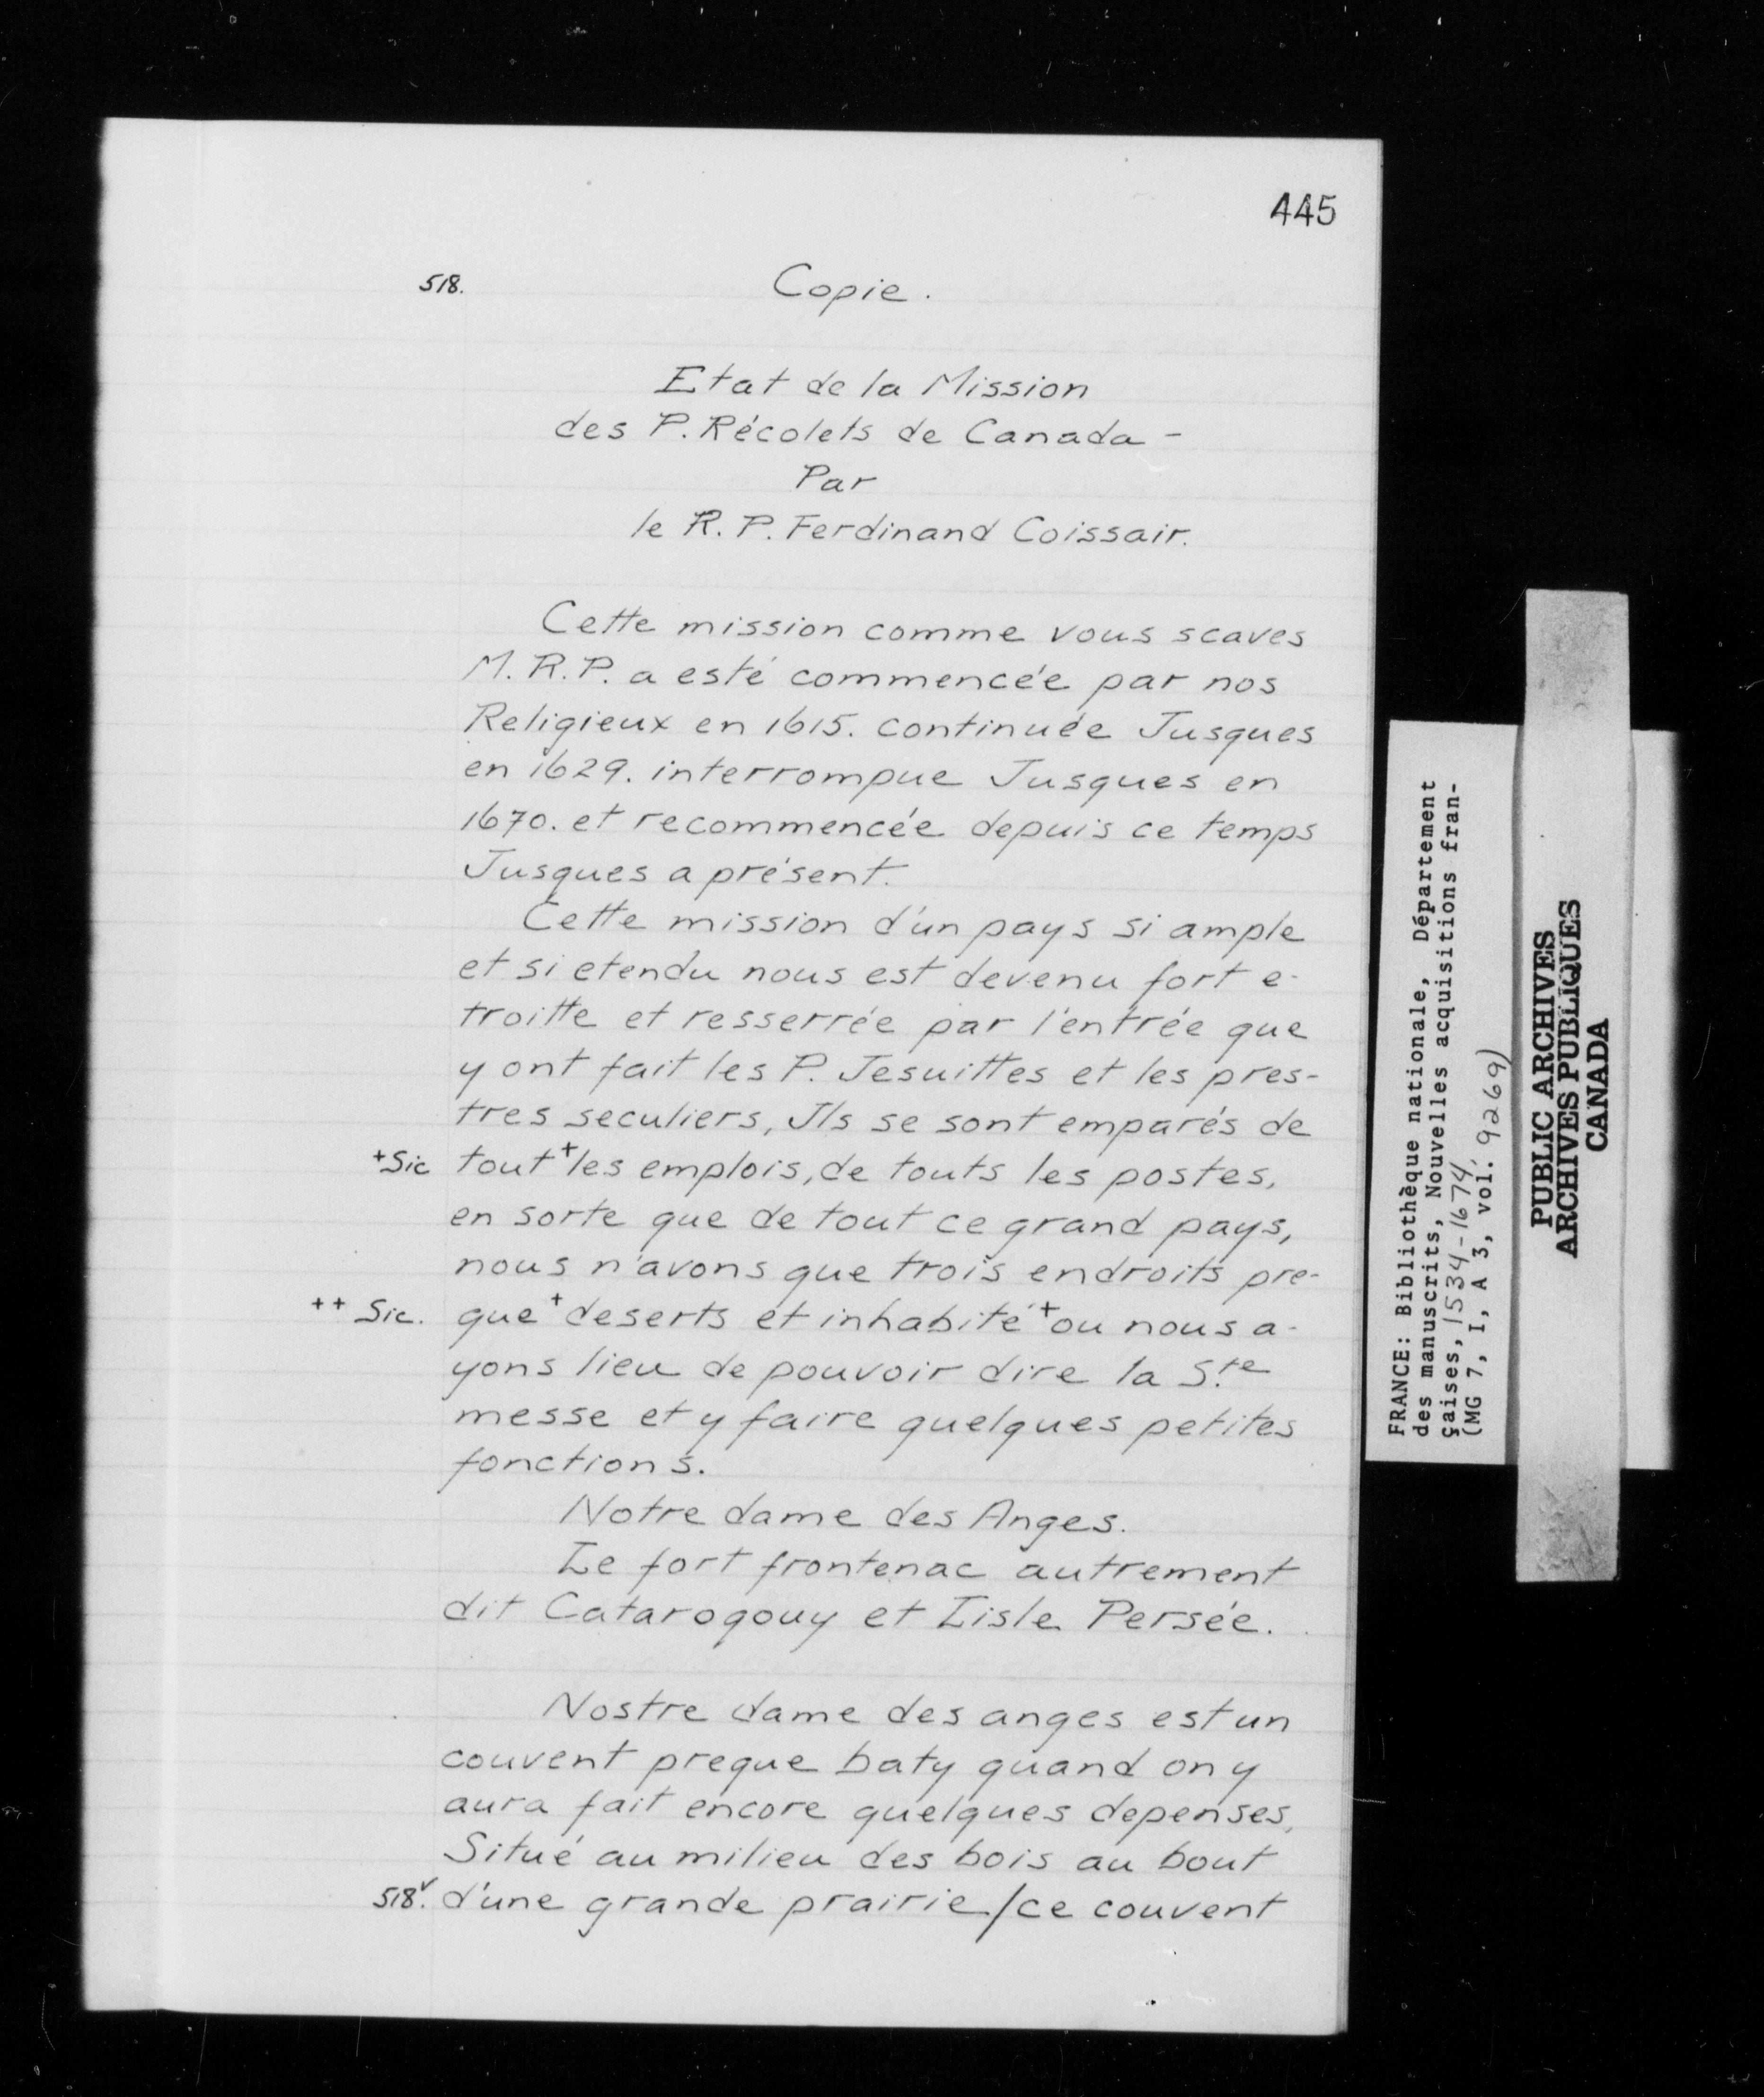 445
518.
Copie.
Etat de la Mission
des P. Récolets de Canada -
Par
le R. P. Ferdinand Coissair.
Cette mission comme vous scaves
M. R. P. a esté commencée par nos
Religieux en 1615. continuée Jusques
en 1629. interrompue Jusques en
1670. et recommencée depuis ce temps
Jusques a présent.
Cette mission d'un pays si ample
et si etendu nous est devenu fort e-
troitte et resserrée par l'entrée que
y ont fait les P. Jesuittes et les pres-
tres seculiers, Ils se sont emparés de
+Sic tout + les emplois, de touts les postes,
en sorte que de tout ce grand pays,
nous n'avons que trois endroits pre-
++ Sic. que + deserts et inhabité + ou nous a-
yons lieu de pouvoir dire la S.te
messe et y faire quelques petites
fonctions.
Notre dame des Anges.
Le fort frontenac autrement
dit Catarogouy et Lisle Persée.
Nostre dame des anges est un
couvent preque baty quand on y
aura fait encore quelques depenses,
Situé au milieu des bois au bout
518v. d'une grande prairie/ce couvent
FRANCE: Bibliothèque nationale, Département
des manuscrits, Nouvelles acquisitions fran-
çaises, 1534-1674
(MG 7, I, A 3, vol. 9269)
PUBLIC ARCHIVES
ARCHIVES PUBLIQUES
CANADA